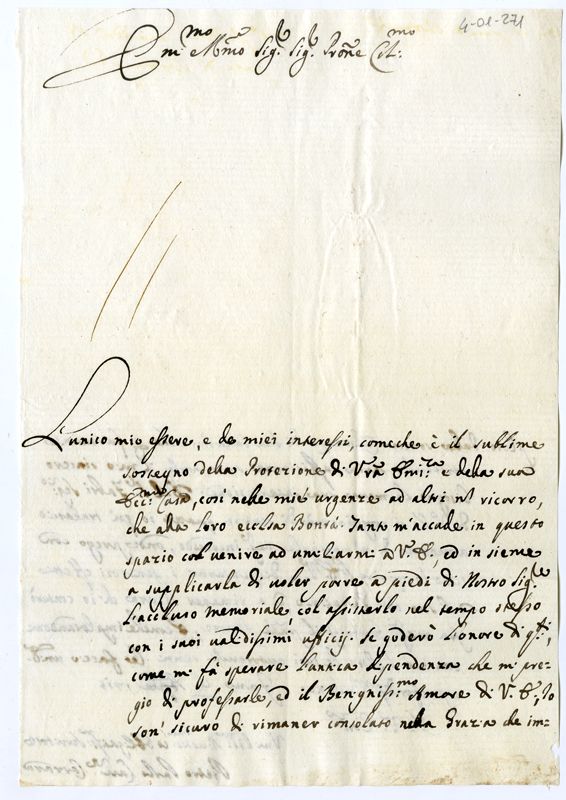 4-01-271
Em.mo e R.mo Sig.r Sig.r Prone Col.mo
L'unico mio essere, e de miei interessi, comeche è il sublime
sostegno della Protezione di V.ra Emi.za e della sua
Ecc.ma Casa, così nelle mie urgenze ad altri nõ ricorro,
che alla loro eccelsa Bontà. Tanto m'accade in questo
spazio col venire ad umiliarmi a V. E., ed in sieme
a supplicarla di voler porre a piedi di Nostro Sig.re
l'accluso memoriale, col assisterlo nel tempo stesso
con i suoi validissimi ufficij. Se goderò l'onore di q.ti,
come mi fà sperare l'antica dipendenza che mi pre-
gio di professarle, ed il Benigniss.mo Amore di V. E., Io
son' sicuro di rimaner consolato nella Grazia che im-